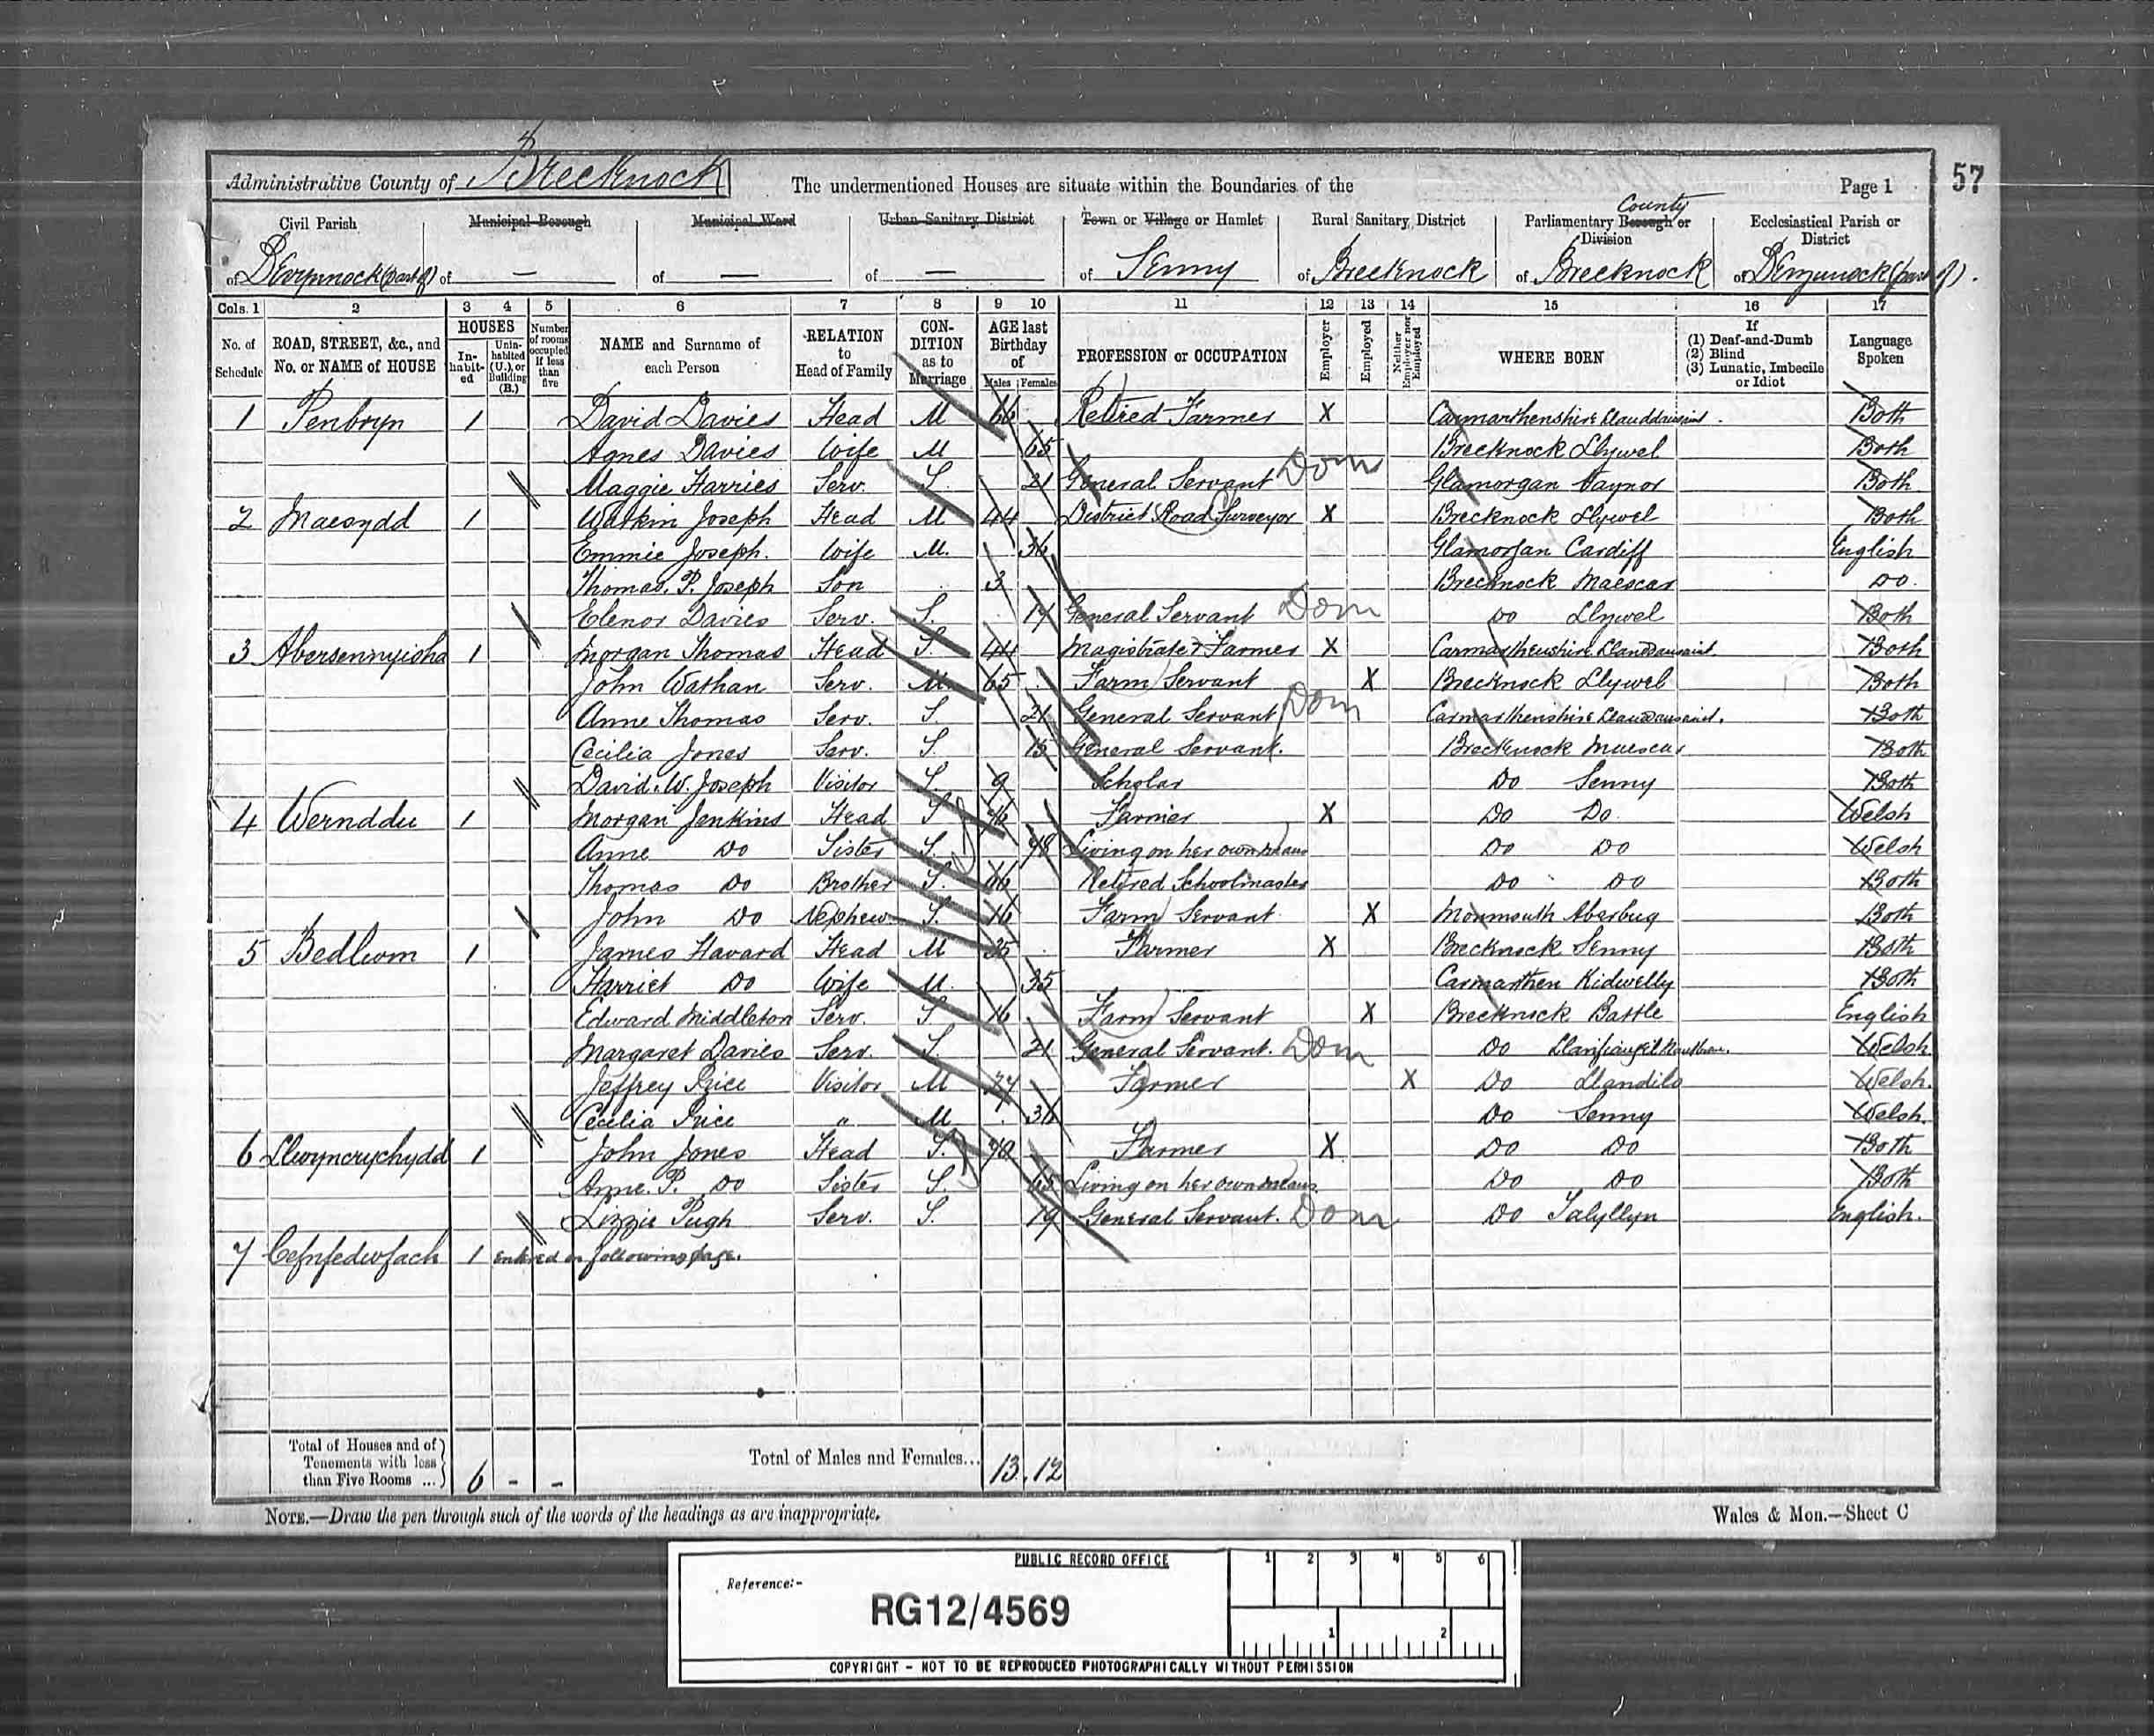 Administrative County of Brecknock The undermentioned Houses are situate within the Boundaries of the Page 1 57
Civil Parish Municipal Borough Municipal Ward Urban Sanitary District Town or Village or Hamlet Rural Sanitary District Parliamentary Borough or County Division Ecclesiastical Parish or District
of Devynnock (part of) of — of — of — of Senny of Brecknock of Brecknock of Devynnock (part of).
Cols. 1 2 3 4 5 6 7 8 9 10 11 12 13 14 15 16 17
No. of Schedule ROAD, STREET, &c., and No. or NAME of HOUSE HOUSES In-habit-ed Unin-habited (U.), or Building (B.) Number of rooms occupied if less than five NAME and Surname of each Person RELATION to Head of Family CON-DITION as to Marriage AGE last Birthday of Males Females PROFESSION or OCCUPATION Employer Employed Neither Employer nor Employed WHERE BORN If (1) Deaf-and-Dumb (2) Blind (3) Lunatic, Imbecile or Idiot Language Spoken
1 Penbryn 1 David Davies Head M 66 Retired Farmer X Carmarthenshire Llanddausaint Both
Agnes Davies Wife M 65 Brecknock Llywel Both
Maggie Harries Serv. S. 21 General Servant Dom Glamorgan Vaynor Both
2 Maesydd 1 Watkin Joseph Head M 44 District Road Surveyor X Brecknock Llywel Both
Emmie Joseph. Wife M. 36 Glamorgan Cardiff English
Thomas. P. Joseph Son 3 Brecknock Maescar Do.
Elenor Davies Serv. S. General Servant Dom Do Llywel Both
3 Abersennyisha 1 Morgan Thomas Head S. 44 Magistrate & Farmer X Carmarthenshire Llanddausaint. Both
John Wathan Serv. M. 65 Farm Servant X Brecknock Llywel Both
Anne Thomas Serv. S. 21 General Servant Dom Carmarthenshire Llanddausaint. Both
Cecilia Jones Serv. S. 15 General Servant. Brecknock Maescar Both
David. W. Joseph Visitor S. 9 Scholar Do Senny Both
4 Wernddu 1 Morgan Jenkins Head S Farmer X Do Do Welsh
Anne Do Sister S. Living on her own means Do Do Welsh
Thomas Do Brother S. 66 Retired Schoolmaster Do Do Both
John Do Nephew S. 16 Farm Servant X Monmouth Aberbeeg Both
5 Bedlwm 1 James Havard Head M 35 Farmer X Brecknock Senny Both
Harriet Do Wife M. 35 Carmarthen Kidwelly Both
Edward Middleton Serv. S. 16 Farm Servant X Brecknock Battle English
Margaret Davies Serv. S. 21 General Servant. Dom Do Welsh
Jeffrey Price Visitor M Farmer X Do Llandilo Welsh.
Cecilia Price " M 36 Do Senny Welsh.
6 Llwyncrychydd 1 John Jones Head S. 70 Farmer X Do Do Both
Anne. P. Do Sister S. 65 Living on her own means. Do Do Both
Lizzie Pugh Serv. S. 19 General Servant. Dom Do Talyllyn English.
7 Cefnfedwfach 1 entered on following page.
Total of Houses and of Tenements with less than Five Rooms ... 6 - - Total of Males and Females... 13. 12
NOTE.—Draw the pen through such of the words of the headings as are inappropriate. Wales & Mon.—Sheet C
PUBLIC RECORD OFFICE 1 2 3 4 5 6
Reference:-
RG12/4569
1 2
COPYRIGHT - NOT TO BE REPRODUCED PHOTOGRAPHICALLY WITHOUT PERMISSION